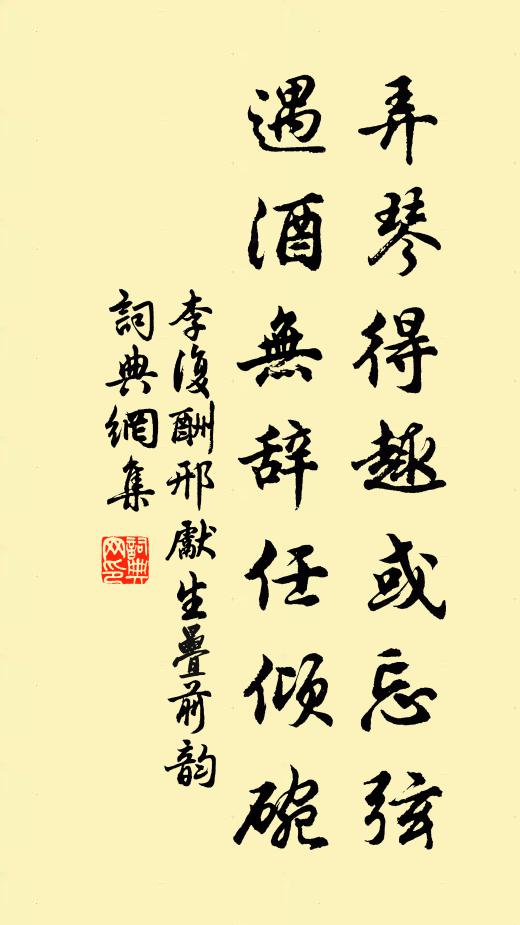 弄琴得趣或忘弦
遇酒無辞任倾碗
李復酬邢獻生疊前韵
詞典網集
詞典
网印